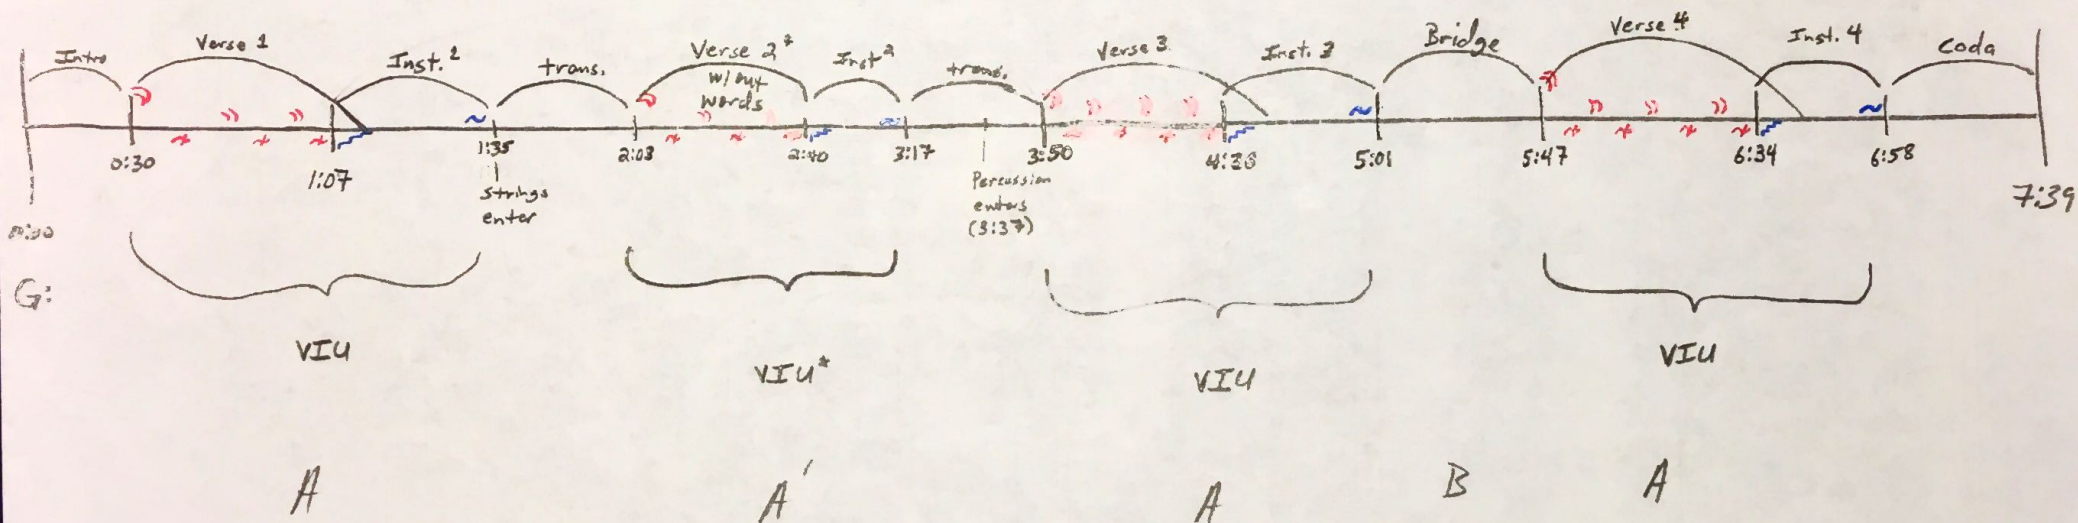 Intro
Verse 1
Inst. 1
trans.
Verse 2*
w/out
words
Inst 2
trans.
Verse 3
Inst. 3
Bridge
Verse 4
Inst. 4
Coda
0:30
1:07
1:35
2:03
2:40
3:17
3:50
5:01
5:47
6:34
6:58
7:39
Strings
enter
Percussion
enters
(3:37)
G:
VIU
VIU*
VIU
VIU
A
A'
A
B
A